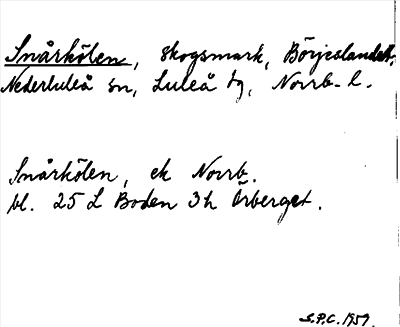 Snårkölen, skogsmark, Börjeslandet,
Nederluleå sn, Luleå tg, Norrb. l.
Snårkölen, ek Norrb.
bl. 25 L Boden 3h Örberget.
S.P.C. 1959.